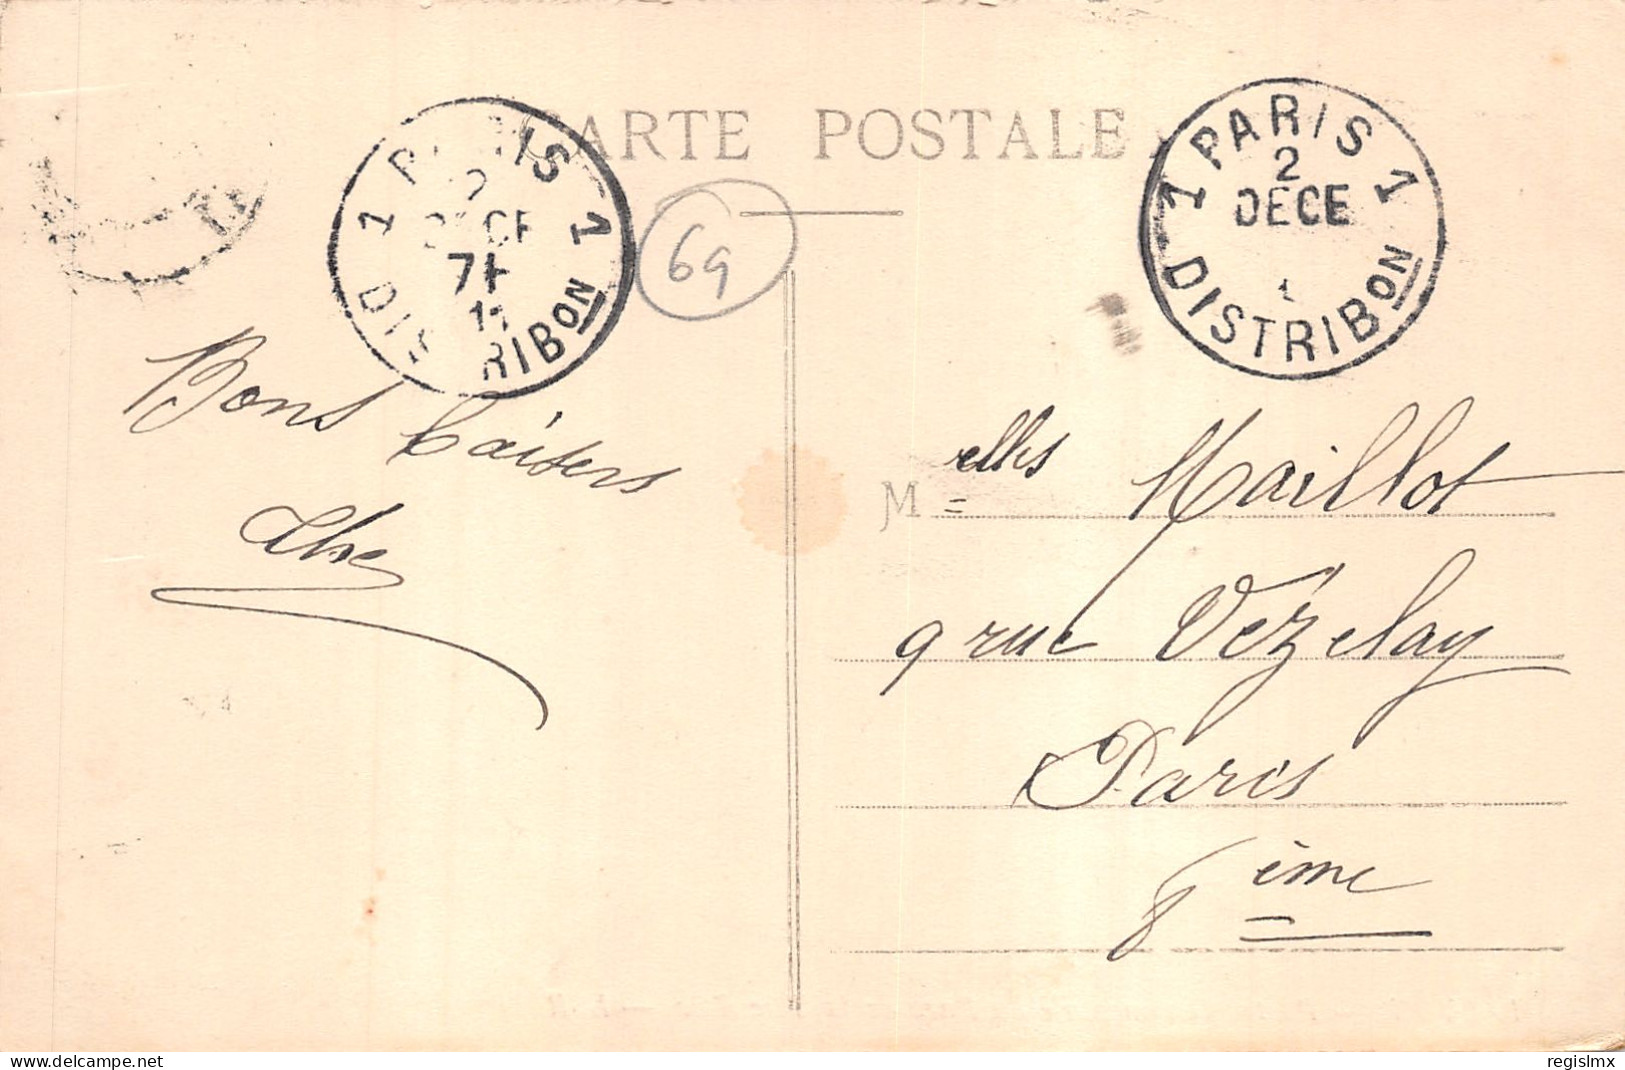 CARTE POSTALE
1 PARIS 1
2
DECE
7H
DISTRIBON
69
1 PARIS 1
2
DECE
1
DISTRIBON
Bons baisers
M elles Maillot
9 rue Vézelay
Paris
8 ème
delcampe.net
regislmx